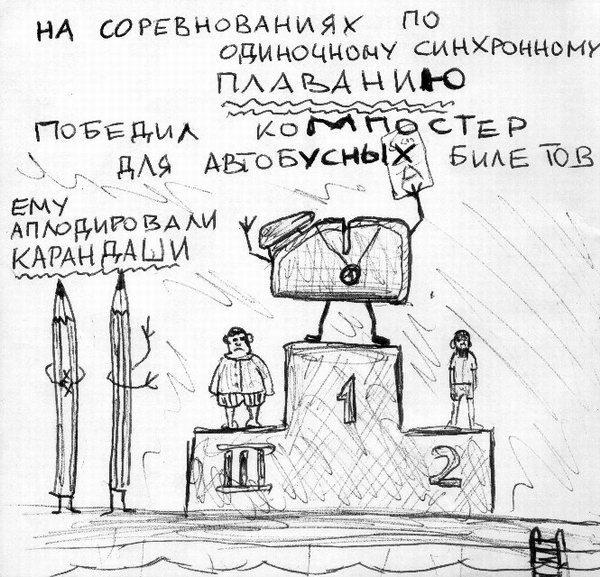 НА СОРЕВНОВАНИЯХ ПО
ОДИНОЧНОМУ СИНХРОННОМУ
ПЛАВАНИЮ
ПОБЕДИЛ КОМПОСТЕР
ДЛЯ АВТОБУСНЫХ БИЛЕТОВ
ЕМУ
АПЛОДИРОВАЛИ
КАРАНДАШИ
1
III
2